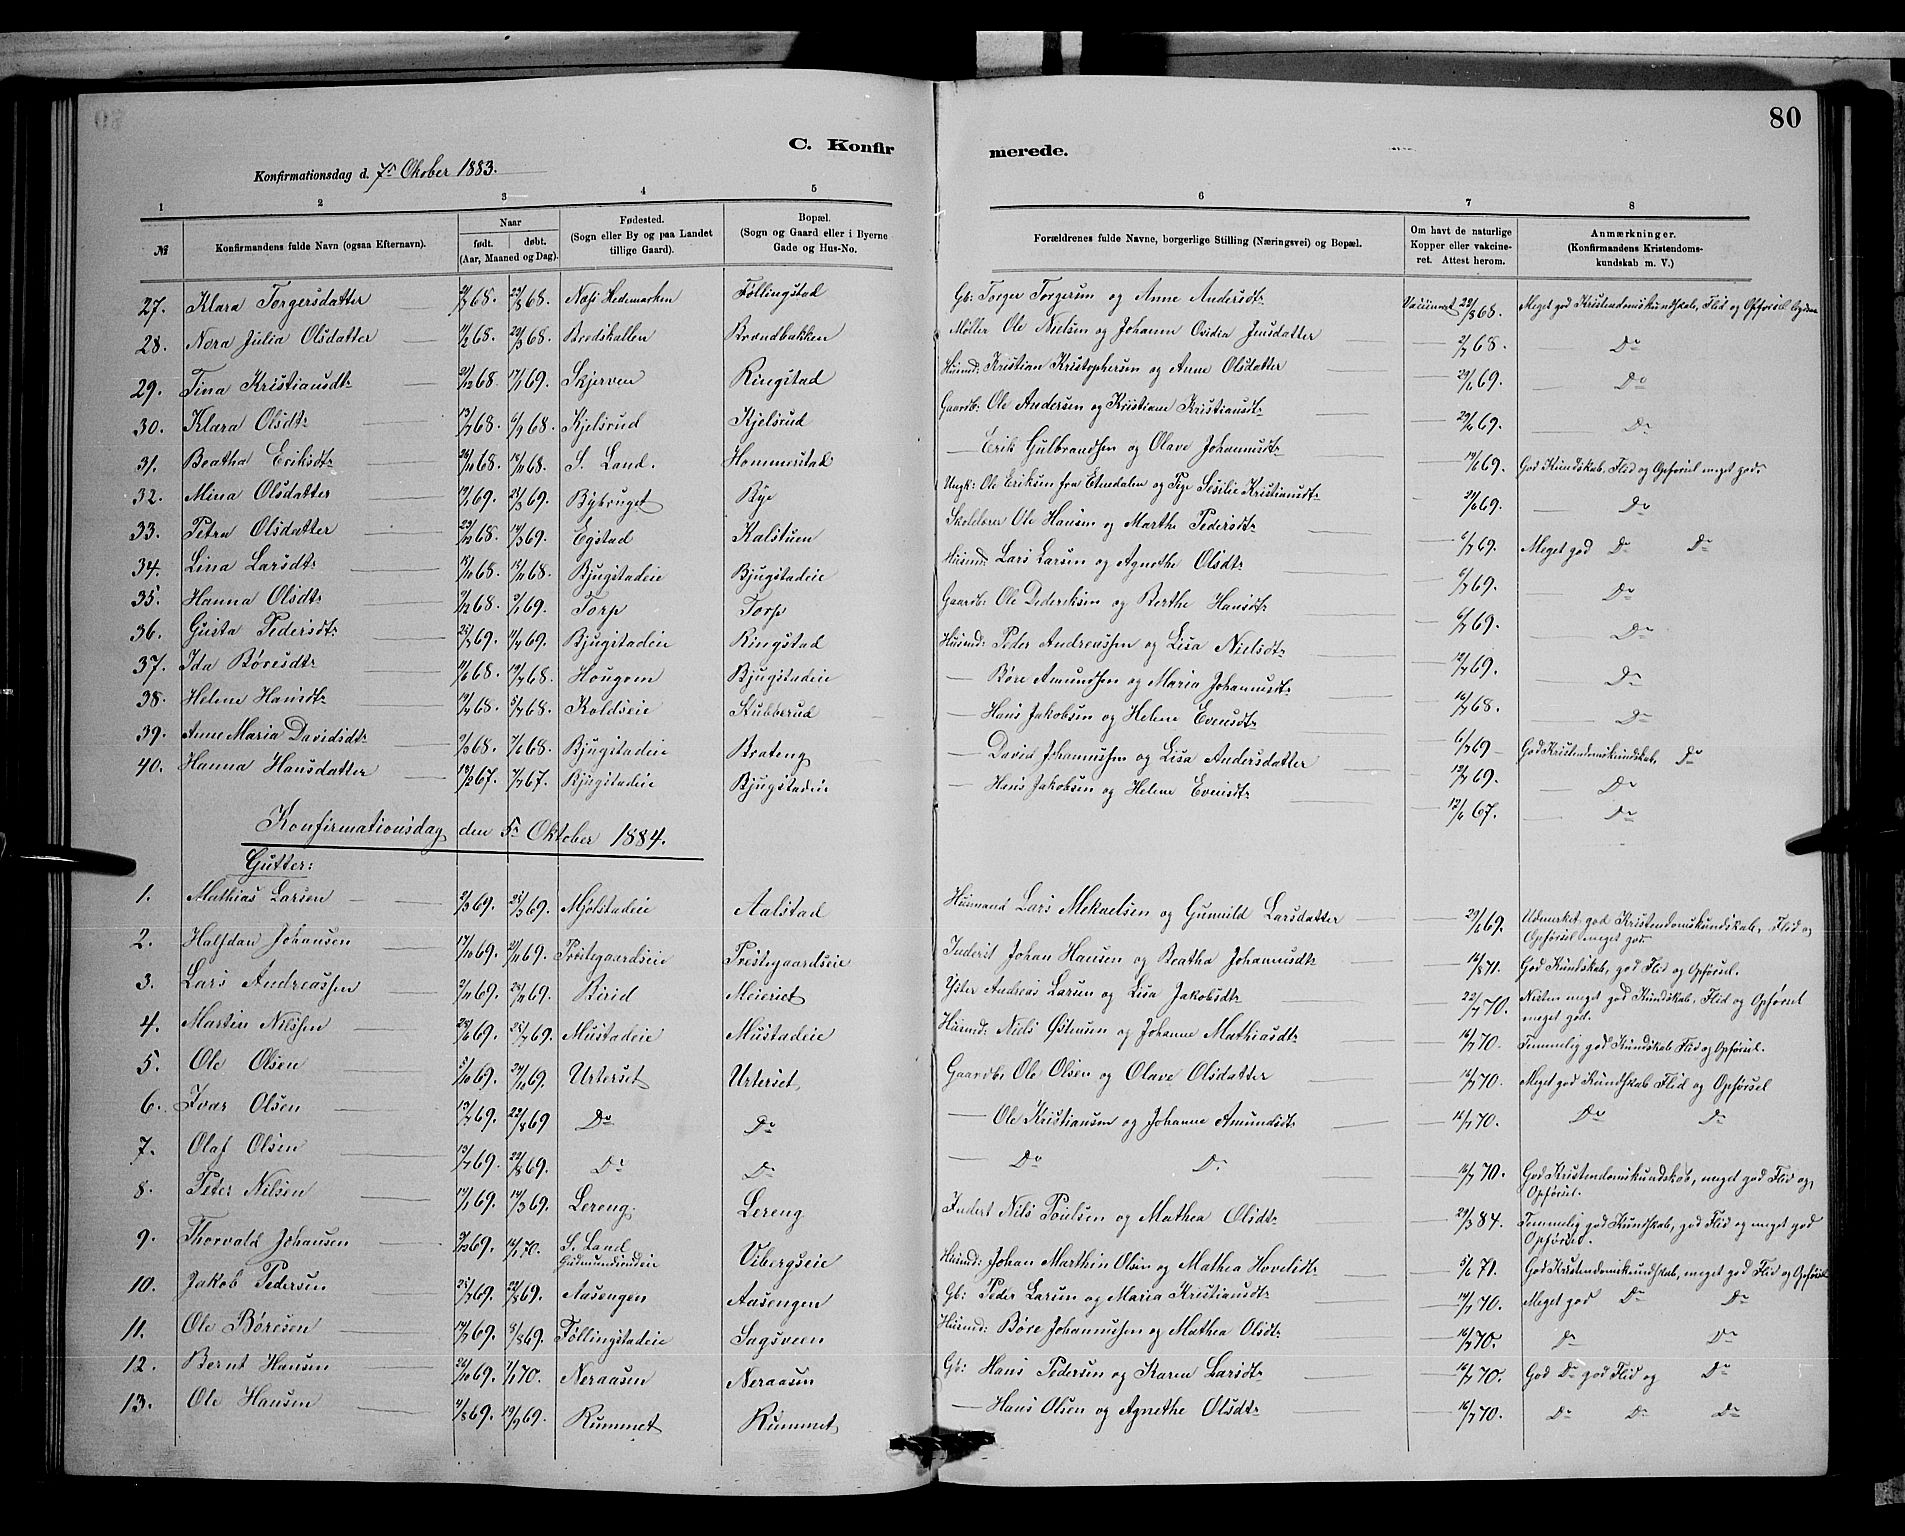 80
C. Konfirmerede.
Konfirmationsdag d. 7de Oktober 1883.
1 2 3 4 5 6 7 8
№ Konfirmandens fulde Navn (ogsaa Efternavn). Naar født. døbt. (Aar, Maaned og Dag). Fødested. (Sogn eller By og paa Landet tillige Gaard). Bopæl. (Sogn og Gaard eller i Byerne Gade og Hus-No. Forældrenes fulde Navne, borgerlige Stilling (Næringsvei) og Bopæl. Om havt de naturlige Kopper eller vakcineret. Attest herom. Anmærkninger. (Konfirmandens Kristendomskundskab m. V.)
27. Klara Torgersdatter 68. 22/8 68. Næs Hedemarken Föllingstad Gb: Torger Torgersen og Anne Andersdtr Vaccineret 22/8 68. Meget god Kristendomskundskab, Flid og Opførsel
28. Nora Julia Olsdatter 11/2 68. 22/3 68. Bredskallen Brændbakken Møller Ole Nielsen og Johanne Ovidia Jensdatter 2/7 68. Do
29. Tina Kristiansdtr 21/12 68. 17/1 69. Skjerven Ringstad Husmd: Kristian Kristophersen og Anne Olsdatter 29/6 69. Do
30. Klara Olsdtr 13/7 68. 6/9 68. Kjelsrud Kjelsrud Gaardb: Ole Andersen og Kristiane Kristiansdtr 29/6 69. Do
31. Beatha Eriksdtr 24/10 68. 15/11 68. S. Land. Hommerstad — Erik Gulbrandsen og Olave Johannesdtr 19/6 69. God Kundskab, Flid og Opførsel meget god.
32. Mina Olsdatter 19/1 69. 25/3 69. Bybruget Bye Ungk: Ole Eriksen fra Etnedalen og Pige Sesilie Kristiansdtr 21/6 69. Do
33. Petra Olsdatter 23/12 68. 14/3 69. Egstad Kalstuen Skolelærer Ole Hansen og Marthe Pedersdtr 6/7 69. Meget god Do Do
34. Lina Larsdtr 13/10 68. 15/11 68. Bjugstadeie Bjugstadeie Husmd: Lars Larsen og Agnethe Olsdtr 6/7 69. Do
35. Hanna Olsdtr 7/12 68. 3/1 69. Torp Torp Gaardb: Ole Dedreksen og Berthe Hansdtr 6/7 69. Do
36. Gusta Pedersdtr 25/2 69. 11/4 69. Bjugstadeie Ringstad Husmd: Peder Andreassen og Lisa Nielsdtr 12/7 69. Do
37. Ida Børesdtr 11/6 68. 19/7 68. Hougom Bjugstadeie — Børe Amundsen og Maria Johannesdtr 16/7 68. Do
38. Helene Hansdtr 68. 5/7 68. Koldseie Stubberud — Hans Jakobsen og Helene Evensdtr 6/7 69 God Kristendomskundskab, Do
39. Anne Maria Davidsdtr 3/3 68. 7/6 68. Bjugstadeie Brateng — David Johannessen og Lisa Andersdatter 12/7 69. Do
40. Hanna Hansdatter 19/2 67. 7/7 67. Bjugstadeie Bjugstadeie — Hans Jakobsen og Helene Evensdtr 12/6 67. Do
Konfirmationsdag den 5te Oktober 1884.
Gutter:
1. Mathias Larsen 2/3 69. 25/3 69. Mjølstadeie Aalstad Husmand Lars Mekaelsen og Gunnild Larsdatter 29/6 69. Udmerket god Kristendomskundskab, Flid og
Opførsel meget god.
2. Halfdan Johansen 17/10 69. 21/11 69. Prestegaardseie Prestegaardseie Inderst Johan Hansen og Beatha Johannesdtr 16/8 71. God Kundskab, god Flid og Opførsel.
3. Lars Andreassen 2/11 69. 25/11 69. Birid Meieriet Yster Andreas Larsen og Lisa Jakobsdtr 22/7 70. Næsten meget god Kundskab, Flid og Opførsel
meget god.
4. Martin Nilssen 28/6 69. 25/7 69. Mustadeie Mustadeie Husmd: Niels Østensen og Johanne Mathiasdtr 16/7 70. Temmelig god Kundskab Flid og Opførsel.
5. Ole Olsen 5/10 69. 24/10 69. Urterset Urterset Gaardbr Ole Olsen og Olave Olsdatter 16/7 70. Meget god Kundskab Flid og Opførsel
6. Ivar Olsen 13/7 69. 22/8 69 Do Do — Ole Kristiansen og Johanne Amundsdtr 16/7 70. Do Do
7. Olaf Olsen 13/7 69. 22/8 69. Do Do Do Do 16/7 70. God Kristendomskundskab, meget god Flid og
Opførsel.
8. Peter Nilsen 17/1 69. 14/3 69. Lereng Lereng Inderst Nils Poulsen og Mathea Olsdtr 29/3 84. Temmelig god Kundskab, god Flid og meget god
Opførsel.
9. Thorvald Johansen 3/12 69. 16/1 70. S. Land Gudmundsrudeie Vibergseie Husmd: Johan Marthin Olsen og Mathea Hovelsdtr 5/6 71. God Kristendomskundskab, meget god Flid og Opførsel
10. Jakob Pedersen 25/7 69. 22/8 69. Aasengen Aasengen Gb: Peder Larsen og Maria Kristiansdtr 14/7 70. Meget god Do Do
11. Ole Børesen 17/7 69. 8/8 69. Föllingstadeie Sagsveen Husmd: Børe Johannessen og Mathea Olsdtr 16/7 70. Do Do
12. Bernt Hansen 24/10 69. 1/1 70. Neraasen Neraasen Gb: Hans Pedersen og Karen Larsdtr 16/7 70. God Do god Flid og Do
13. Ole Hansen 4/8 69. 19/9 69. Rummet Rummet — Hans Olsen og Agnethe Olsdtr 16/7 70. Do Do Do